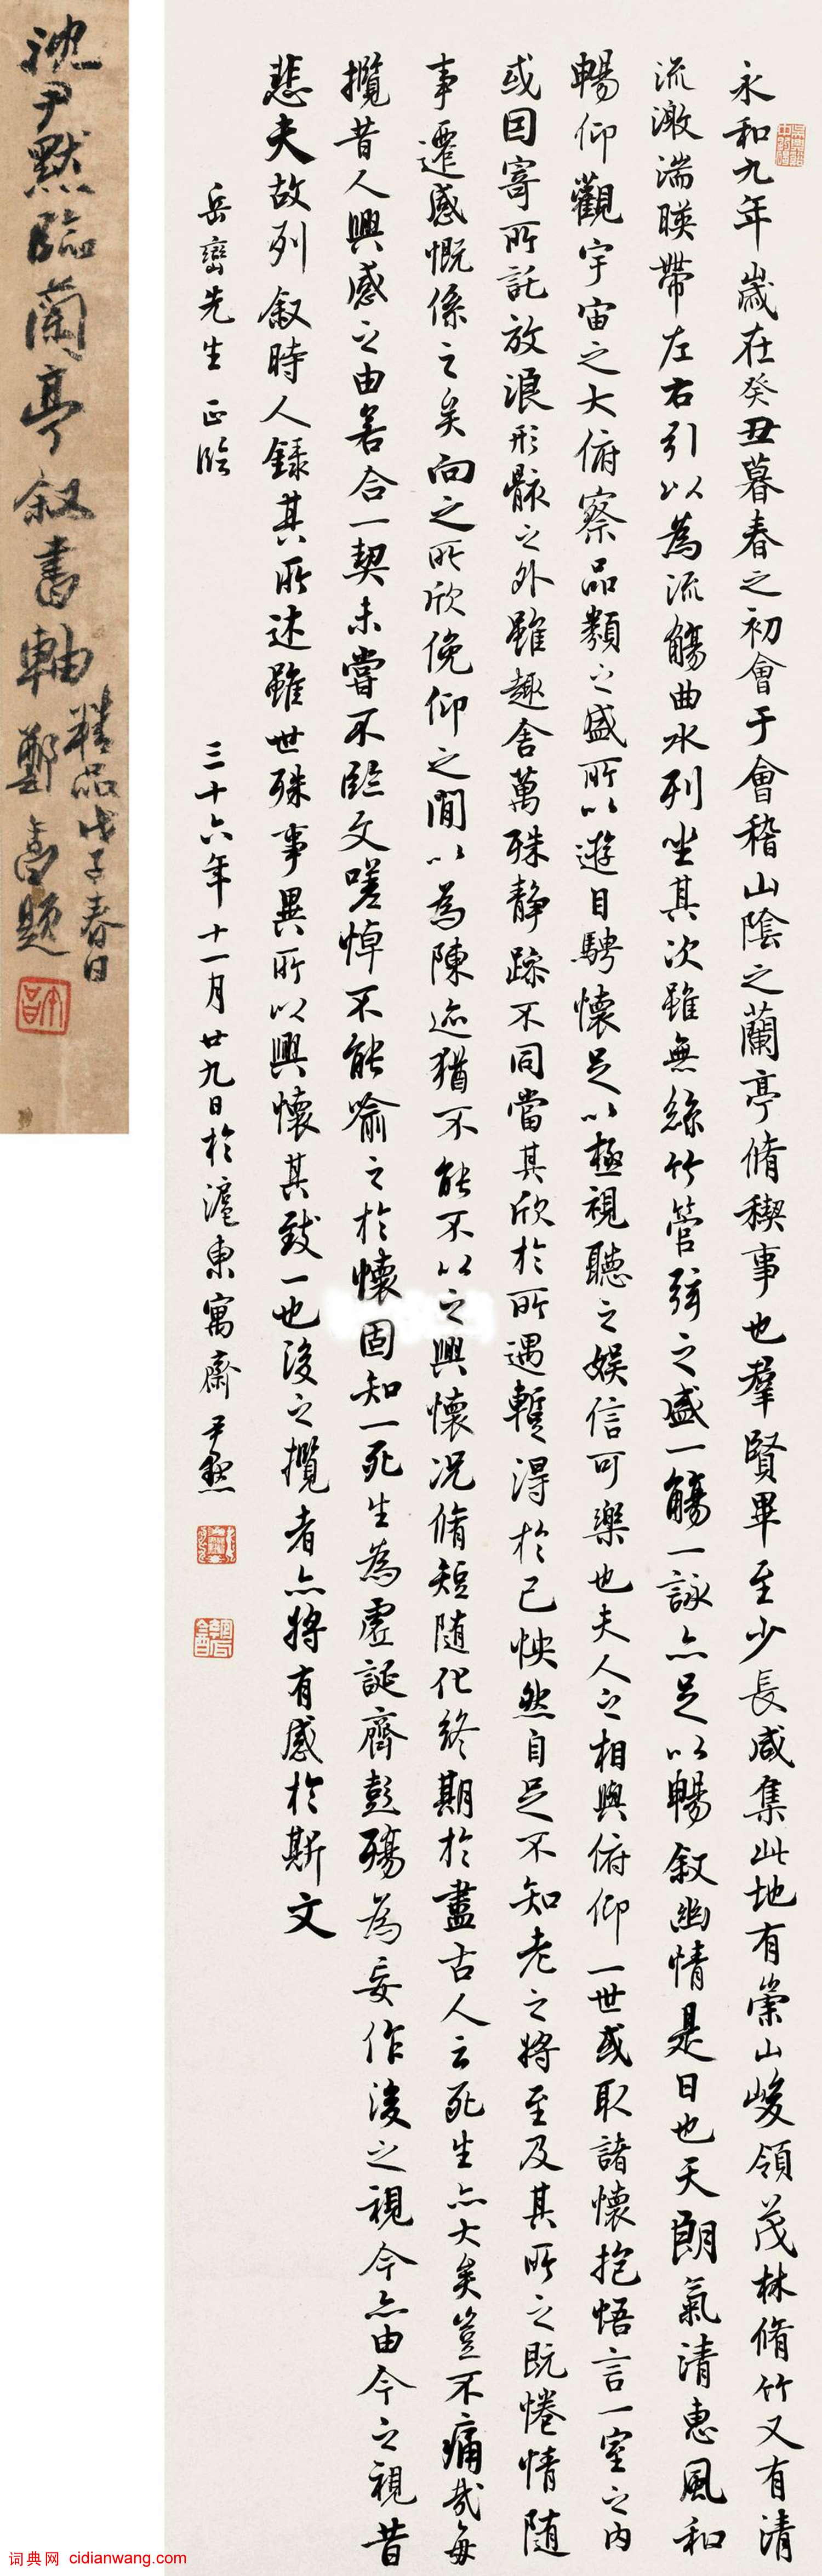 永和九年歲在癸丑暮春之初會于會稽山陰之蘭亭脩稧事也羣賢畢至少長咸集此地有崇山峻領茂林脩竹又有清
流激湍暎帶左右引以為流觴曲水列坐其次雖無絲竹管弦之盛一觴一詠亦足以暢叙幽情是日也天朗氣清惠風和
暢仰觀宇宙之大俯察品類之盛所以遊目騁懷足以極視聽之娛信可樂也夫人之相與俯仰一世或取諸懷抱悟言一室之內
或因寄所託放浪形骸之外雖趣舍萬殊静躁不同當其欣於所遇暫得於己怏然自足不知老之將至及其所之既惓情隨
事遷感慨係之矣向之所欣俛仰之閒以為陳迹猶不能不以之興懷況脩短隨化終期於盡古人云死生亦大矣豈不痛哉每
攬昔人興感之由若合一契未嘗不臨文嗟悼不能喻之於懷固知一死生為虛誕齊彭殤為妄作後之視今亦由今之視昔
悲夫故列叙時人錄其所述雖世殊事異所以興懷其致一也後之攬者亦將有感於斯文
岳巒先生正臨
三十六年十一月廿九日於滬東寓齋尹默
沈尹默臨蘭亭叙書軸
精品戊子春日
鄭喬題
词典网 cidianwang.com